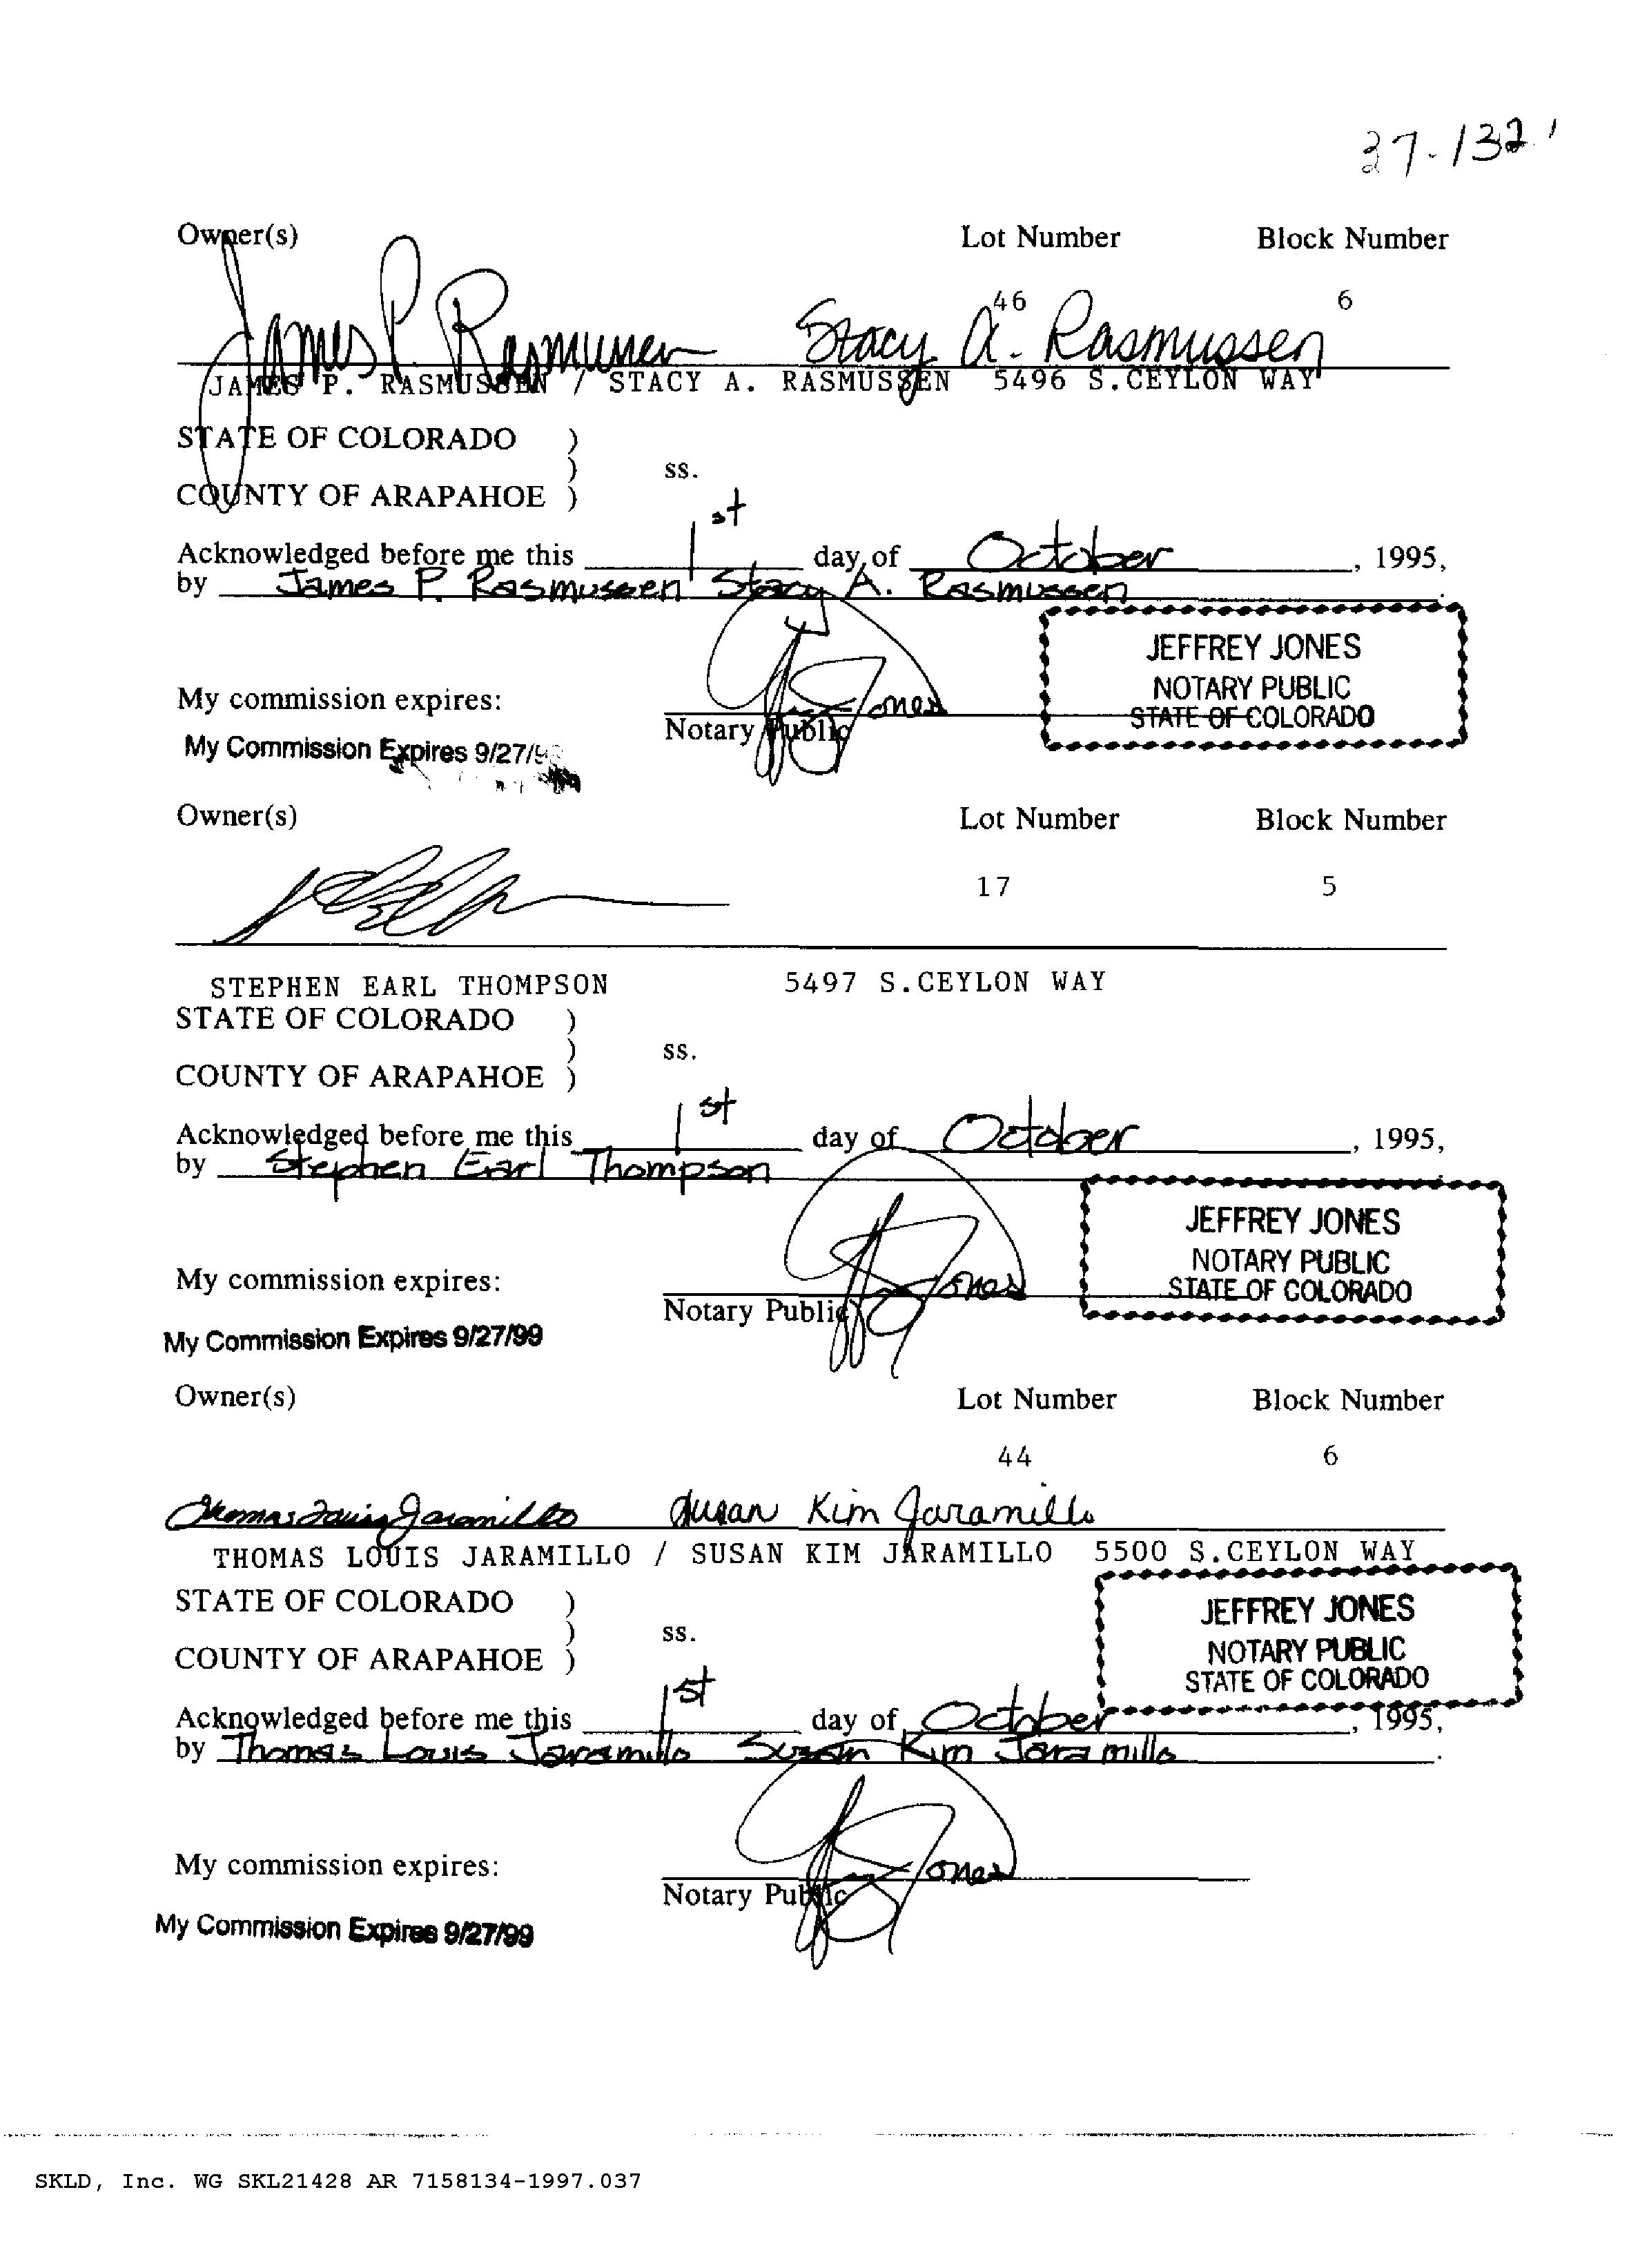 37-132
Owner(s) Lot Number Block Number
46 6
James P. Rasmussen Stacy A. Rasmussen
JAMES P. RASMUSSEN / STACY A. RASMUSSEN 5496 S.CEYLON WAY
STATE OF COLORADO )
) ss.
COUNTY OF ARAPAHOE )
Acknowledged before me this 1st day of October, 1995,
by James P. Rasmussen Stacy A. Rasmussen.
JEFFREY JONES
NOTARY PUBLIC
STATE OF COLORADO
My commission expires: Jones
Notary Public
My Commission Expires 9/27/9
Owner(s) Lot Number Block Number
17 5
STEPHEN EARL THOMPSON 5497 S.CEYLON WAY
STATE OF COLORADO )
) ss.
COUNTY OF ARAPAHOE )
Acknowledged before me this 1st day of October, 1995,
by Stephen Earl Thompson
JEFFREY JONES
NOTARY PUBLIC
STATE OF COLORADO
My commission expires: Jones
Notary Public
My Commission Expires 9/27/99
Owner(s) Lot Number Block Number
44 6
Thomas Louis Jaramillo Susan Kim Jaramillo
THOMAS LOUIS JARAMILLO / SUSAN KIM JARAMILLO 5500 S.CEYLON WAY
STATE OF COLORADO )
) ss.
COUNTY OF ARAPAHOE )
JEFFREY JONES
NOTARY PUBLIC
STATE OF COLORADO
Acknowledged before me this 1st day of October, 1995,
by Thomas Louis Jaramillo Susan Kim Jaramillo.
My commission expires: Jones
Notary Public
My Commission Expires 9/27/99
SKLD, Inc. WG SKL21428 AR 7158134-1997.037